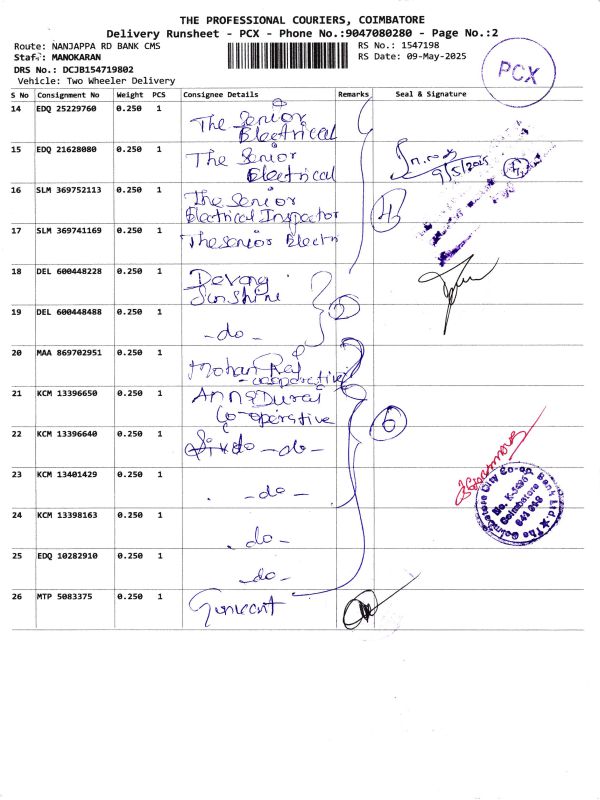 THE PROFESSIONAL COURIERS, COIMBATORE
Delivery Runsheet - PCX - Phone No.:9047080280 - Page No.:2
Route: NANJAPPA RD BANK CMS
RS No.: 1547198
Staff: MANOKARAN
RS Date: 09-May-2025
DRS No.: DCJB154719802
Vehicle: Two Wheeler Delivery
PCX
S No Consignment No Weight PCS Consignee Details Remarks Seal & Signature
14 EDQ 25229760 0.250 1 The Senior
Electrical
15 EDQ 21628080 0.250 1 The Senior
Electrical
9/5/2025
4
16 SLM 369752113 0.250 1 The Senior
Electrical Inspector
4
17 SLM 369741169 0.250 1 The senior Electri
18 DEL 600448228 0.250 1 Devang
Sunshine
19 DEL 600448488 0.250 1 -do-
2
20 MAA 869702951 0.250 1 Mohan Raj
- cooperative
21 KCM 13396650 0.250 1 Anna Durai
Co-operative
6
22 KCM 13396640 0.250 1 -do-
23 KCM 13401429 0.250 1 -do-
24 KCM 13398163 0.250 1 -do-
25 EDQ 10282910 0.250 1 -do-
26 MTP 5083375 0.250 1
The Coimbatore City Co-op. Bank Ltd.
No. K-1696
Coimbatore
641 018